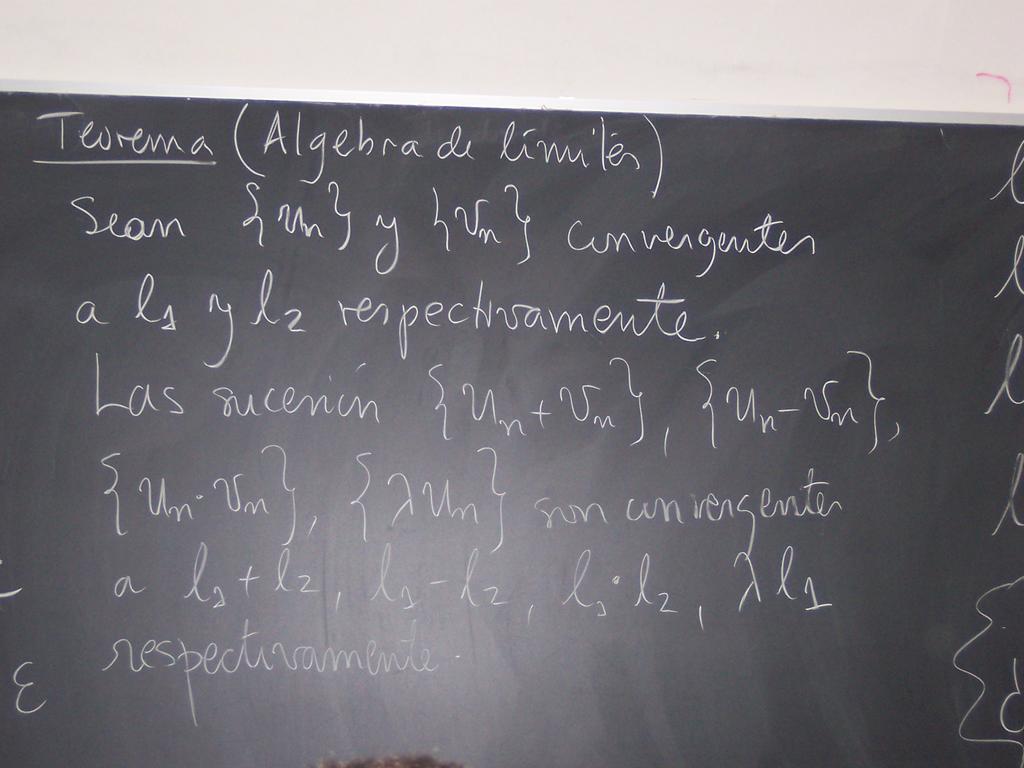 Teorema (Algebra de límites)
Sean {un} y {vn} convergentes
a l1 y l2 respectivamente.
Las sucesión {un + vn}, {un - vn},
{un · vn}, {λun} son convergentes
a l1 + l2, l1 - l2, l1 · l2, λl1
respectivamente.
ε